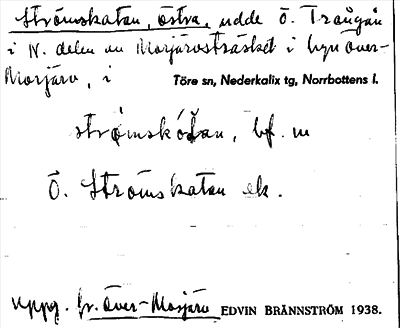 Strömskatan, östra, udde Ö. Trångån
i N. delen av Morjärvsträsket i byn Över-
Morjärv, i Töre sn, Nederkalix tg, Norrbottens l.
bf. m
Ö. Strömskatan ek.
uppg. fr. Över-Morjärv EDVIN BRÄNNSTRÖM 1938.